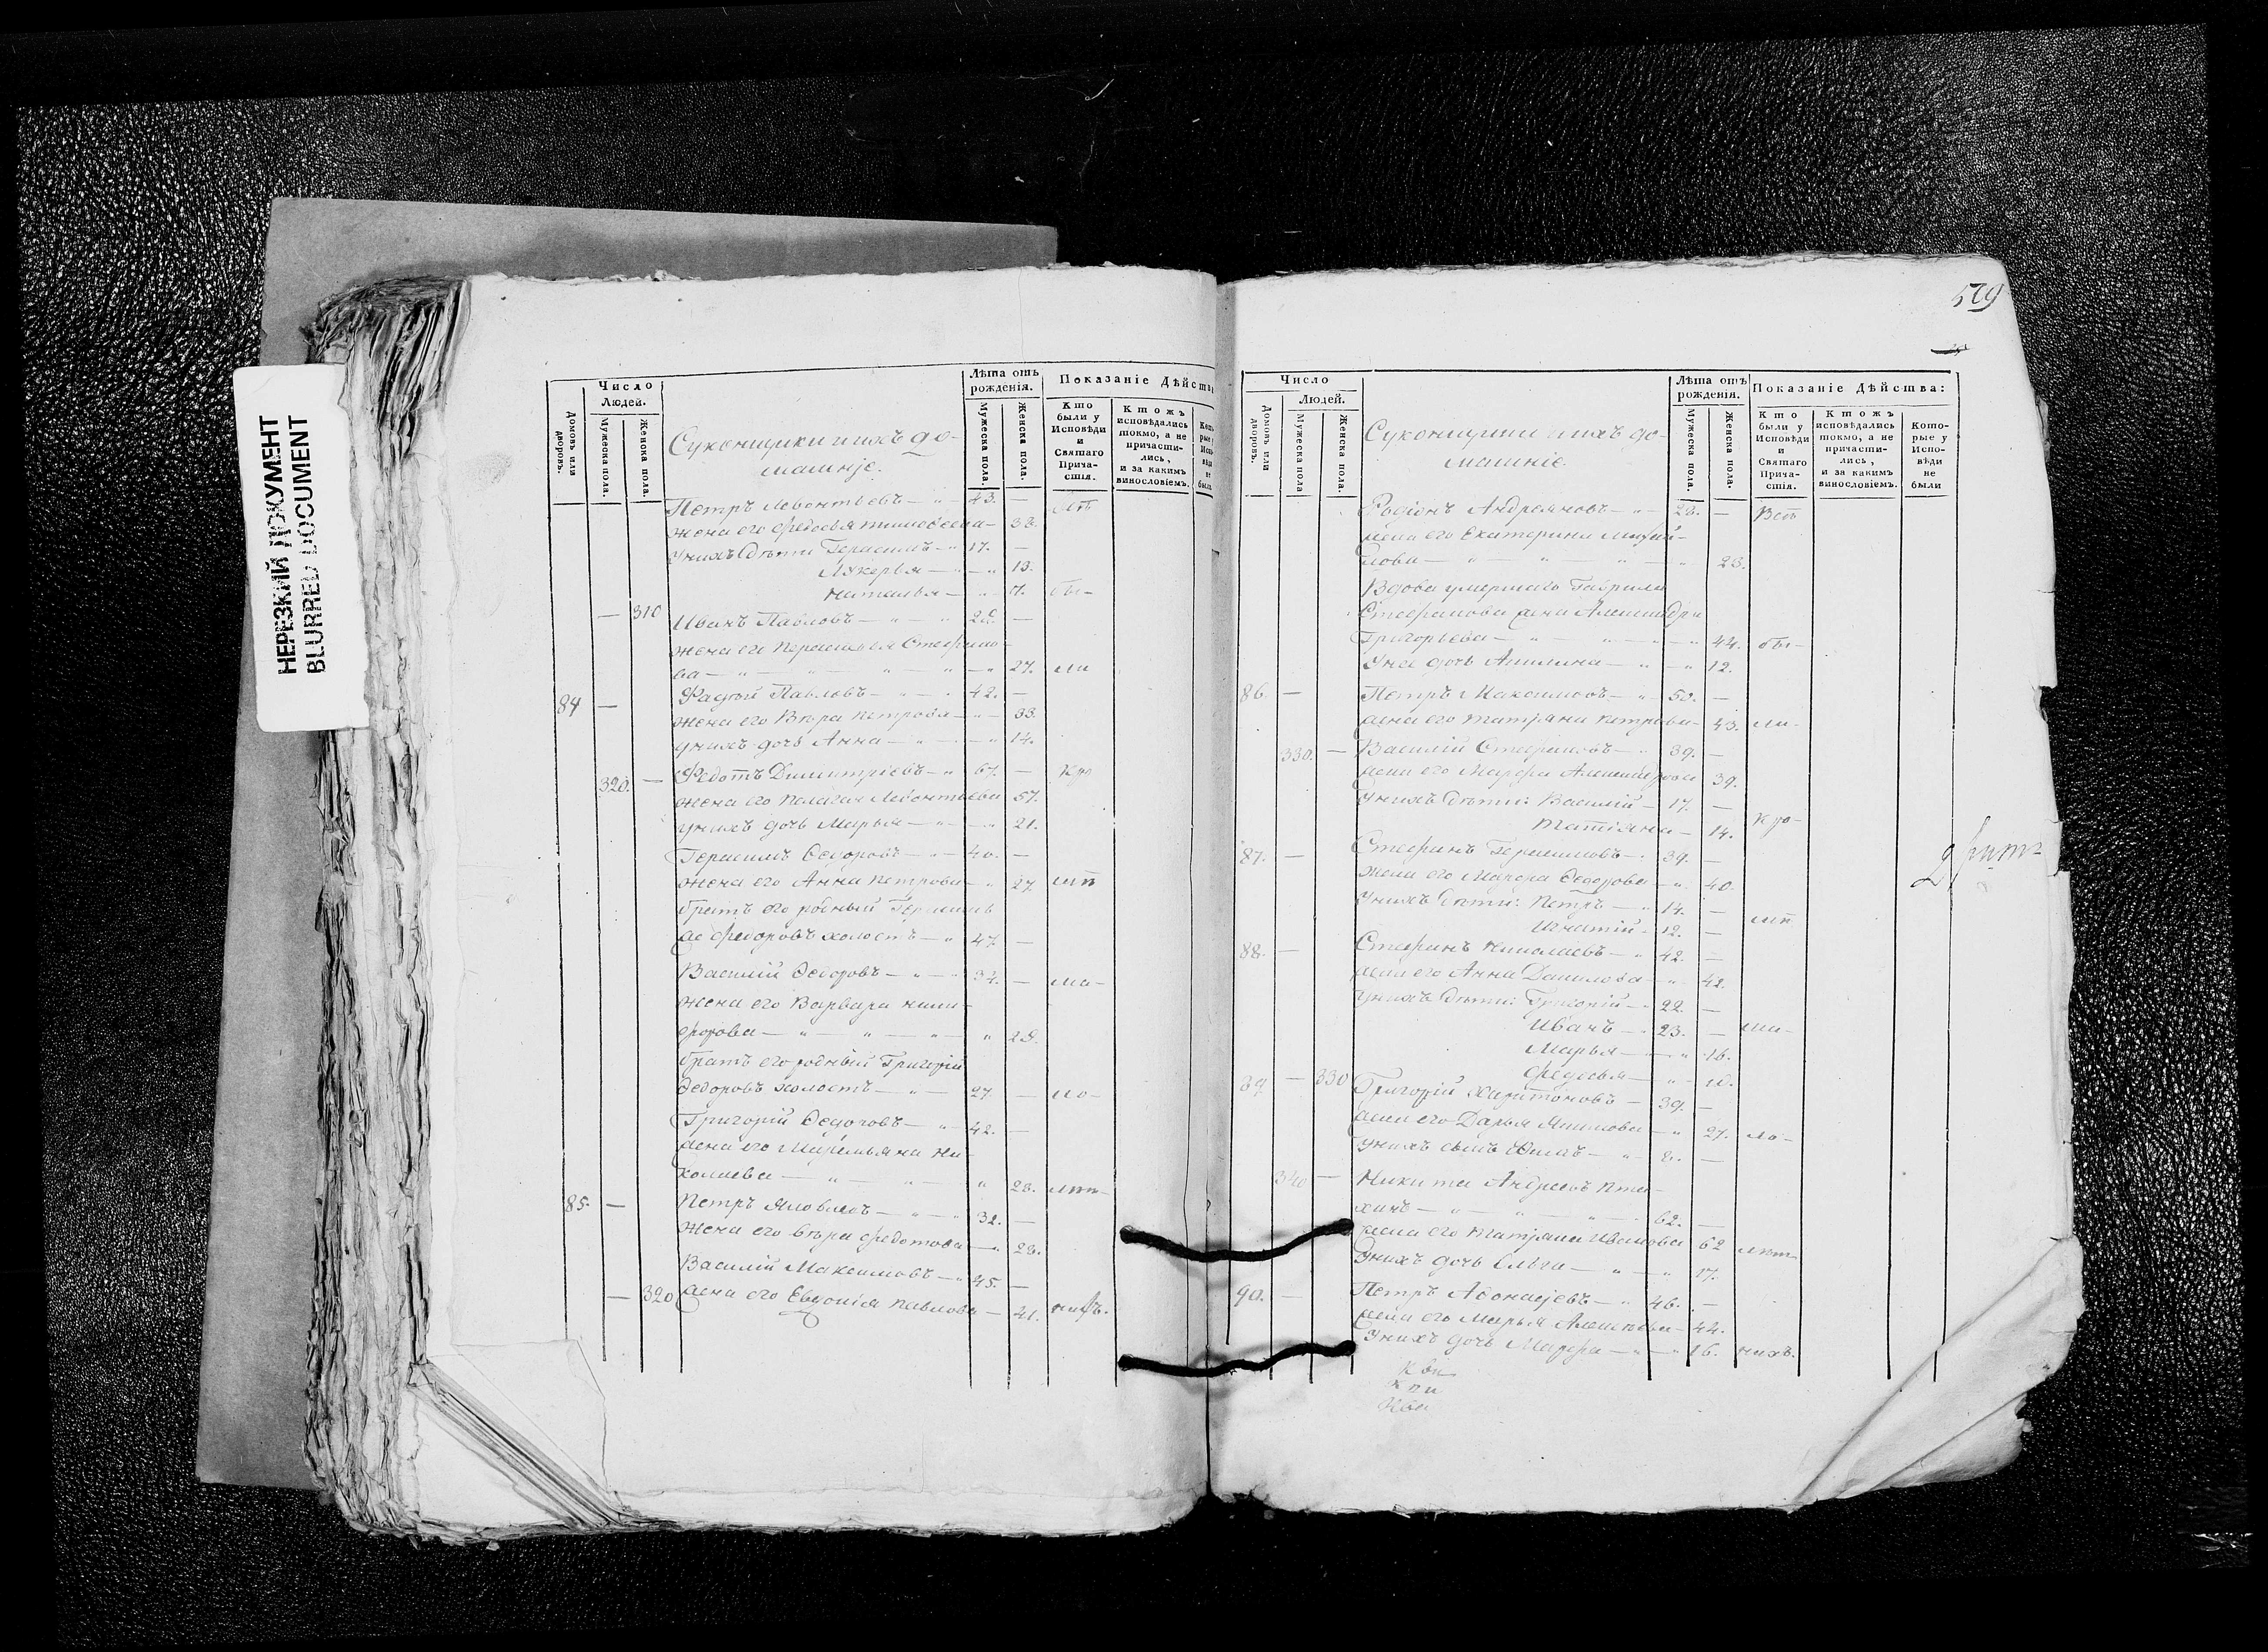 НЕРЕЗКИЙ ДОКУМЕНТ
BLURRED DOCUMENT
Число Людей.
Домовъ или дворовъ.
Мужеска пола.
Женска пола.
Суконщики и ихъ до-
машніе.
Лѣта отъ рожденія.
Мужеска пола.
Женска пола.
Показаніе Дѣйства
Кто были у Исповѣди и Святаго Прича- стія.
Ктожъ исповѣдались токмо, а не причасти- лись, и за какимъ винословіемъ.
Петръ Левонтьевъ 43. —
жена его Федосья 38.
У нихъ дѣти Герасимъ 17. —
Лукерья 13.
Наталья 7. бы-
— 310 Иванъ Павловъ —
жена его Стефано-
ва 27. ли
84 — Фадѣй Павловъ 42. —
жена его Вѣра Петрова 33.
у нихъ дочь Анна 14.
320. — Федотъ Димитріевъ 67. —
жена его Пелагея Левонтьева 57.
у нихъ дочь Марья 21.
Герасимъ Ѳедоровъ 40. —
жена его Анна Петрова 27
братъ его родный Герасимъ
же Федоровъ холостъ 47. —
Василій Ѳедоровъ 34. —
жена его Варвара Ники-
форова 28.
братъ его родный Григорій
Ѳедоровъ холостъ 27 —
Григорій Ѳедоровъ 42. —
жена его Ни-
колаева 28.
85. — Петръ Яковлевъ 32. —
жена его Вѣра Федотова 28.
Василій Максимовъ 45. —
— 320 жена его Евдокія Павлова 41. нихъ.
579
Число Людей.
Домовъ или дворовъ.
Мужеска пола
Женска пола.
Суконщики и ихъ до-
машніе.
Лѣта отъ рожденія.
Мужеска пола.
Женска пола.
Показаніе Дѣйства:
Кто были у Исповѣди и Святаго Прича- стія.
Ктожъ исповѣдались токмо, а не причасти- лись, и за какимъ винословіемъ.
Кото- рые у Испо- вѣди не были
Родіонъ Андреяновъ 28. —
жена его Екатерина Михай-
лова 23.
Вдова умершаго Гаврила
Стефанова жена Александра
Григорьева 44. бы-
У нея дочь Акилина 12.
86 — Петръ Максимовъ 50. —
жена его Татіяна Петрова 43. ли-
330. — Василій Стефановъ 39. —
жена его Марфа Александрова 39.
У нихъ дѣти: Василій 17. —
Татіяна 14.
87. — Стефанъ Герасимовъ 39. —
жена его Марфа Ѳедорова 40.
У нихъ дѣти: Петръ 14. —
Игнатій 12. —
88. — Стефанъ Николаевъ 42. —
жена его Анна Данилова 42.
У нихъ дѣти: Григорій 22. —
Иванъ 23. —
Марья 16.
Федосья 10.
89 — 330 Григорій Харитоновъ 39. —
жена его Дарья 27.
У нихъ сынъ —
340 — Никита Андреевъ Пти-
хинъ 62. —
жена его Татіяна Иванова 62
У нихъ дочь 17.
90. — Петръ Аѳонасьевъ 46. —
жена его Марья Алексѣева 44.
У нихъ дочь Марфа 16. нихъ.